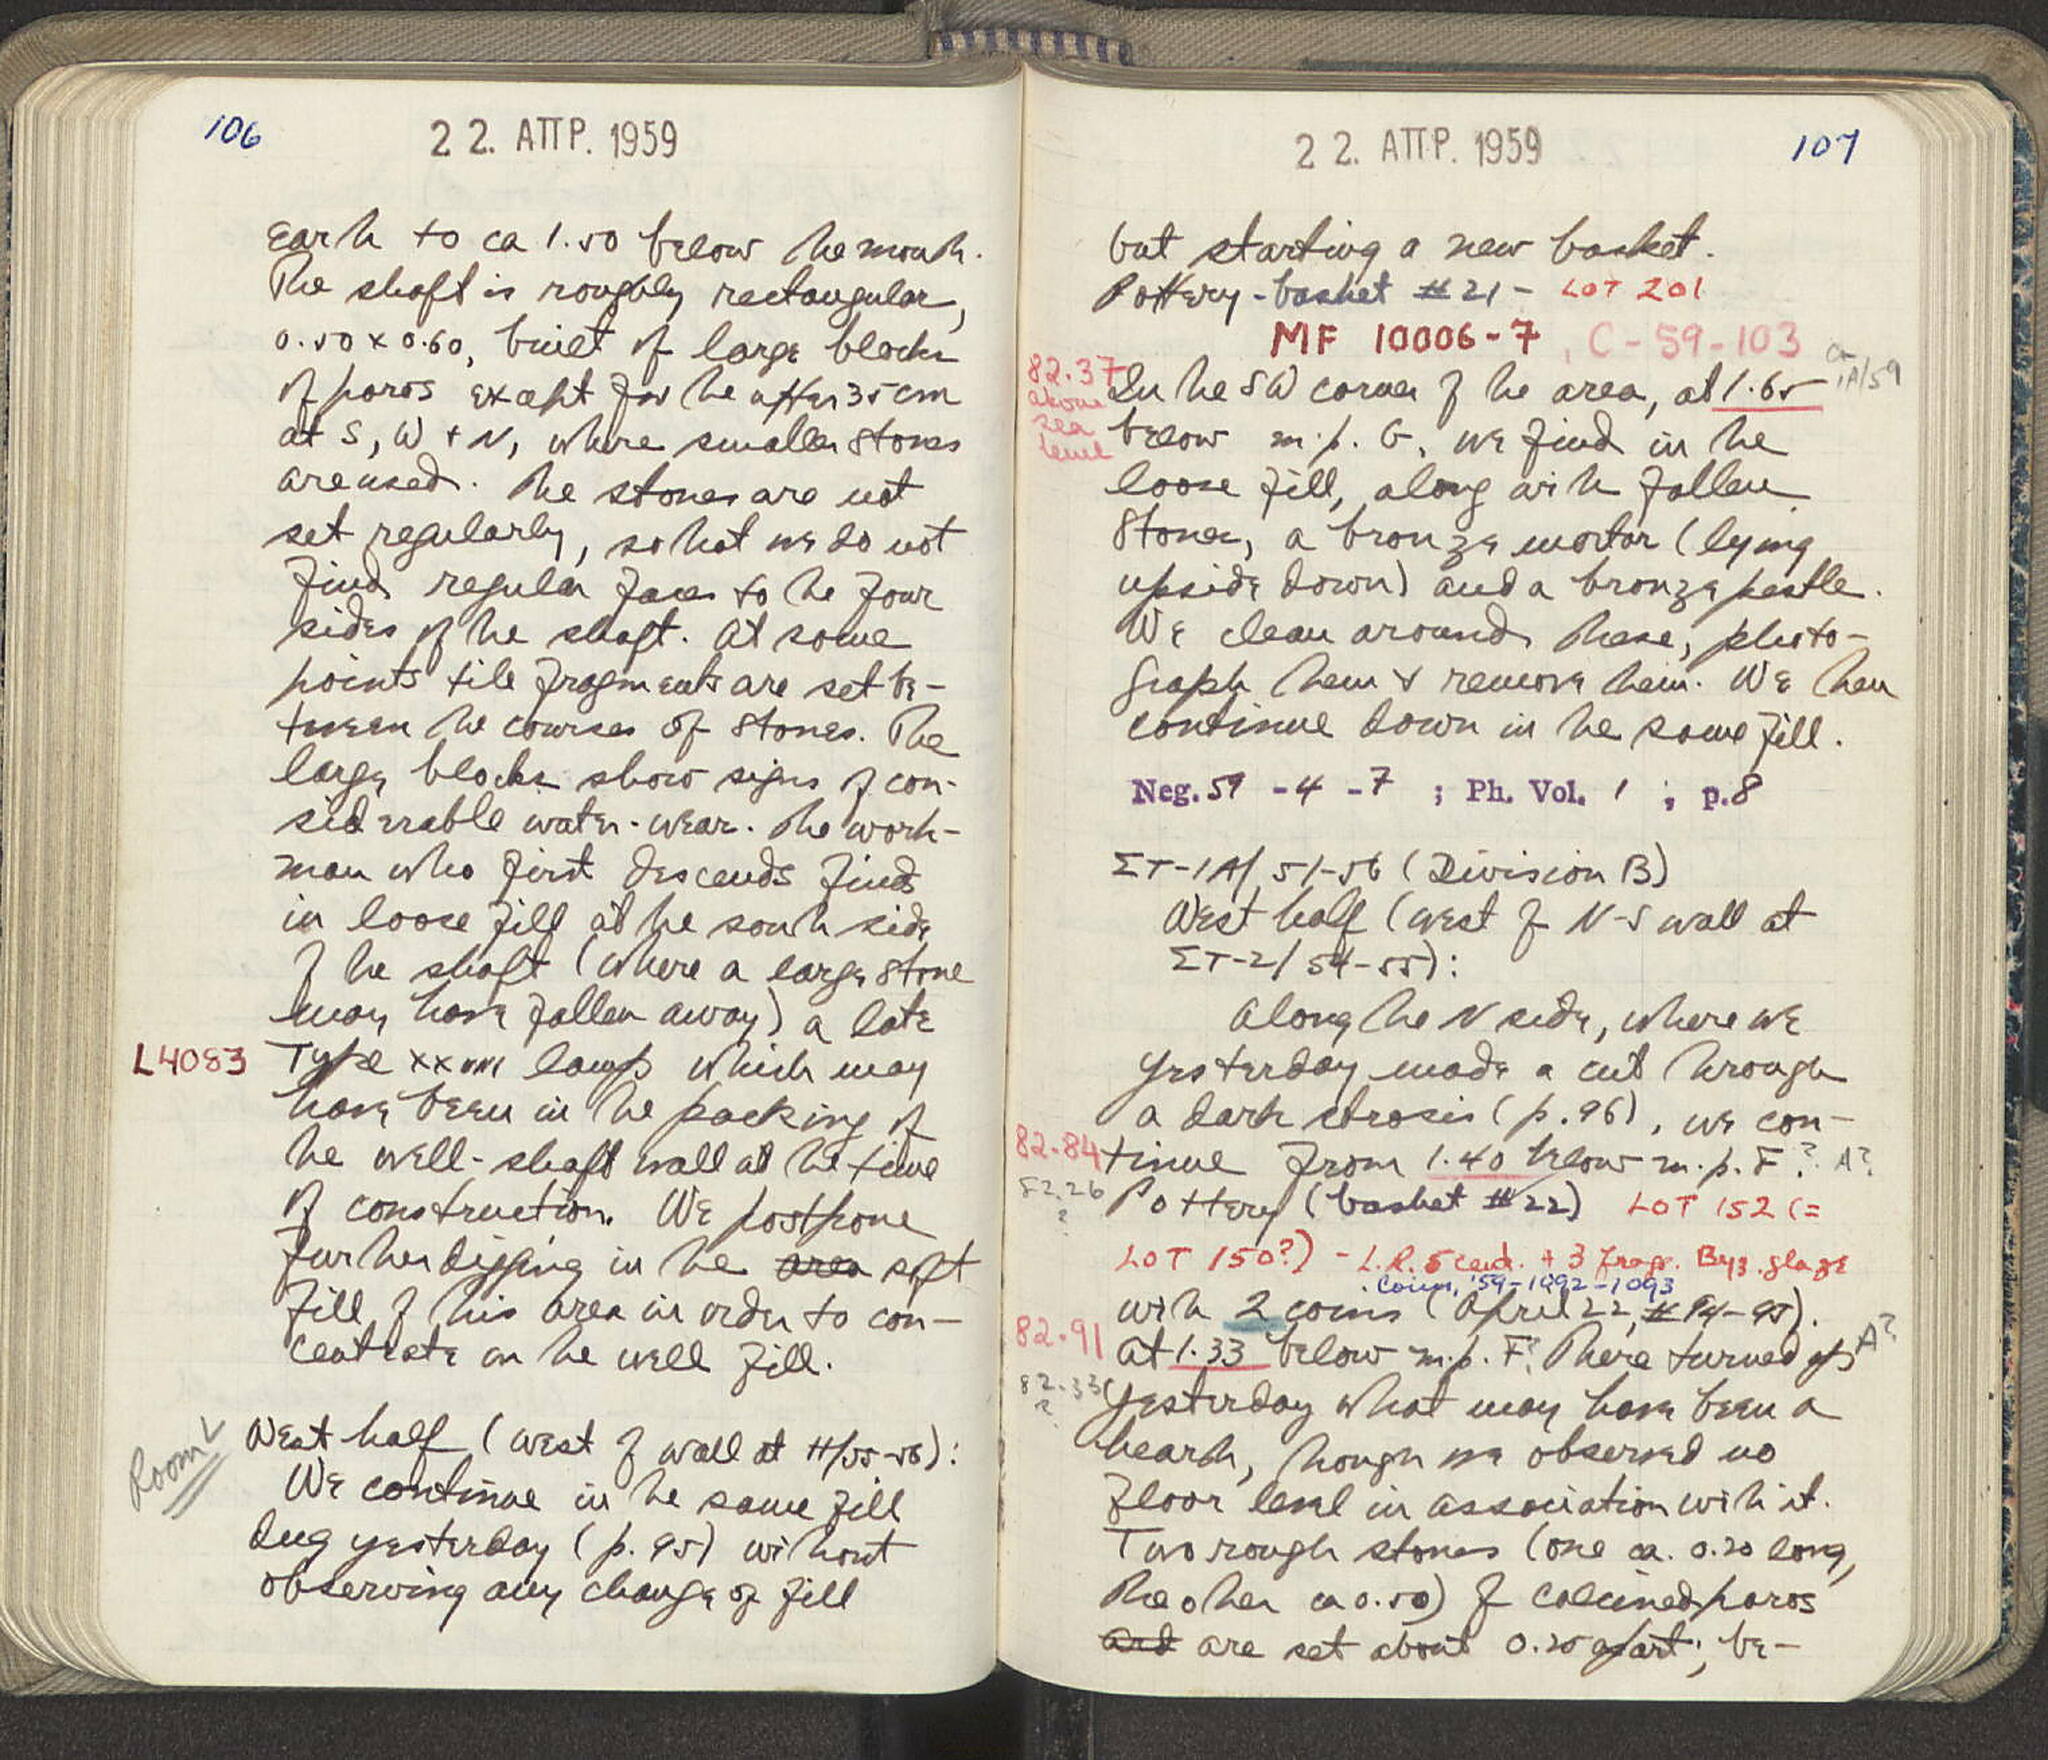 106
22. ΑΠΡ. 1959
earth to ca 1.50 below the mouth.
The shaft is roughly rectangular,
0.50 x 0.60, built of large blocks
of poros except for the upper 35 cm
at S, W + N, where smaller stones
are used. The stones are not
set regularly, so that we do not
find regular faces to the four
sides of the shaft. At some
points tile fragments are set be-
tween the courses of stones. The
large blocks show signs of con-
siderable water-wear. The work-
man who first descends finds
in loose fill at the south side
of the shaft (where a large stone
may have fallen away) a late
L4083 Type XXVIII lamp which may
have been in the packing of
the well-shaft wall at the time
of construction. We postpone
further digging in the area soft
fill of this area in order to con-
centrate on the well fill.
Room L
West half (west of wall at H/55-56):
We continue in the same fill
dug yesterday (p. 95) without
observing any change of fill
107
22. ΑΠΡ. 1959
but starting a new basket.
Pottery - basket #21 - LOT 201
MF 10006-7, C-59-103
82.37 above sea level
In the SW corner of the area, at 1.65
below m.p. G, we find in the
loose fill, along with fallen
stones, a bronze mortar (lying
upside down) and a bronze pestle.
We clean around these, photo-
graph them & remove them. We then
continue down in the same fill.
Neg. 59 - 4 - 7 ; Ph. Vol. 1 ; p. 8
ΣΤ-1A/51-56 (Division B)
West half (west of N-S wall at
ΣΤ-2/54-55):
Along the N side, where we
yesterday made a cut through
a dark strosis (p. 96), we con-
82.84 tinue from 1.40 below m.p. F? A?
82.26 ?
Pottery (basket #22) LOT 152 (=
LOT 150?) - L.R. 5 cent. + 3 frags. Byz. glaze
Coins, '59-1092-1093
with 2 coins (April 22, #94-95).
82.91 At 1.33 below m.p. F? There turned up A?
82.33 ?
yesterday what may have been a
hearth, though we observed no
floor level in association with it.
Two rough stones (one ca. 0.20 long,
the other ca 0.50) of calcined poros
and are set about 0.25 apart; be-